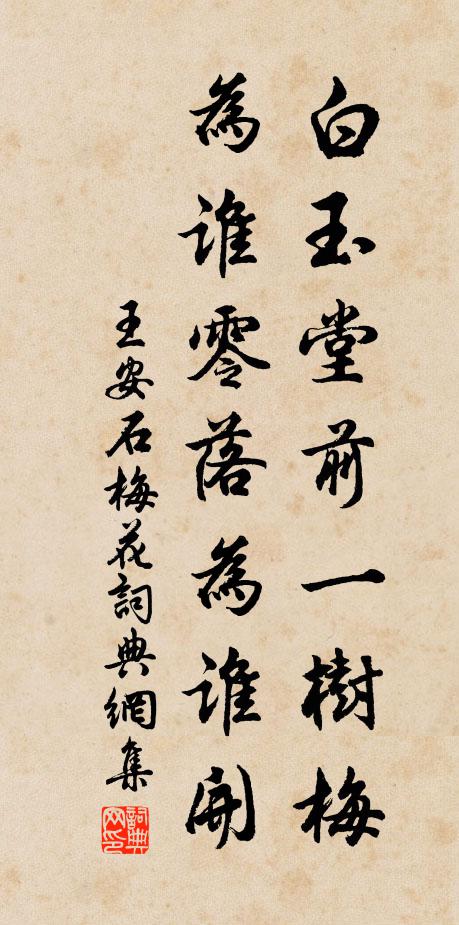 白玉堂前一樹梅
為誰零落為誰開
王安石梅花詞典網集
詞典网印